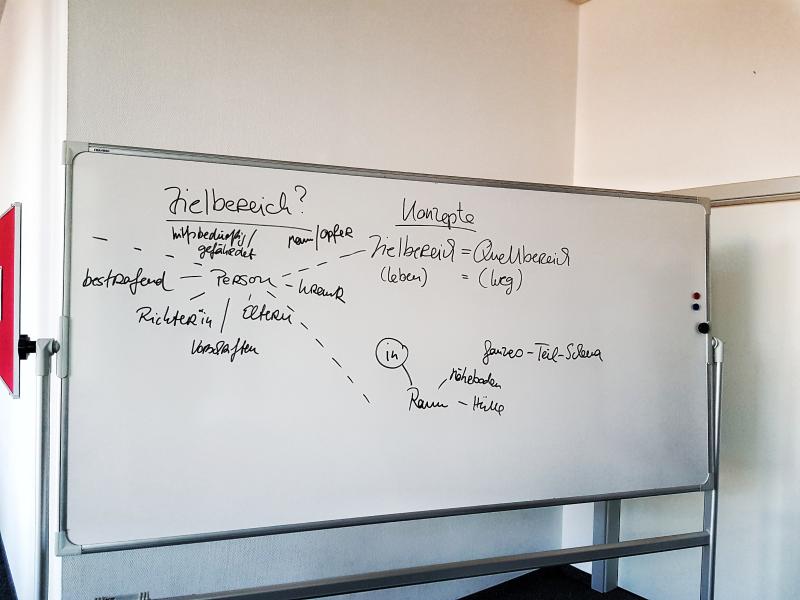 Zielbereich?
hilfsbedürftig/
gefährdet
/opfer
bestrafend — Person
krank
Richter*in / Eltern
Vorschriften
Konzepte
Zielbereich = Quellbereich
(leben) = (weg)
in
Ganzes-Teil-Schema
Raum - Hülle